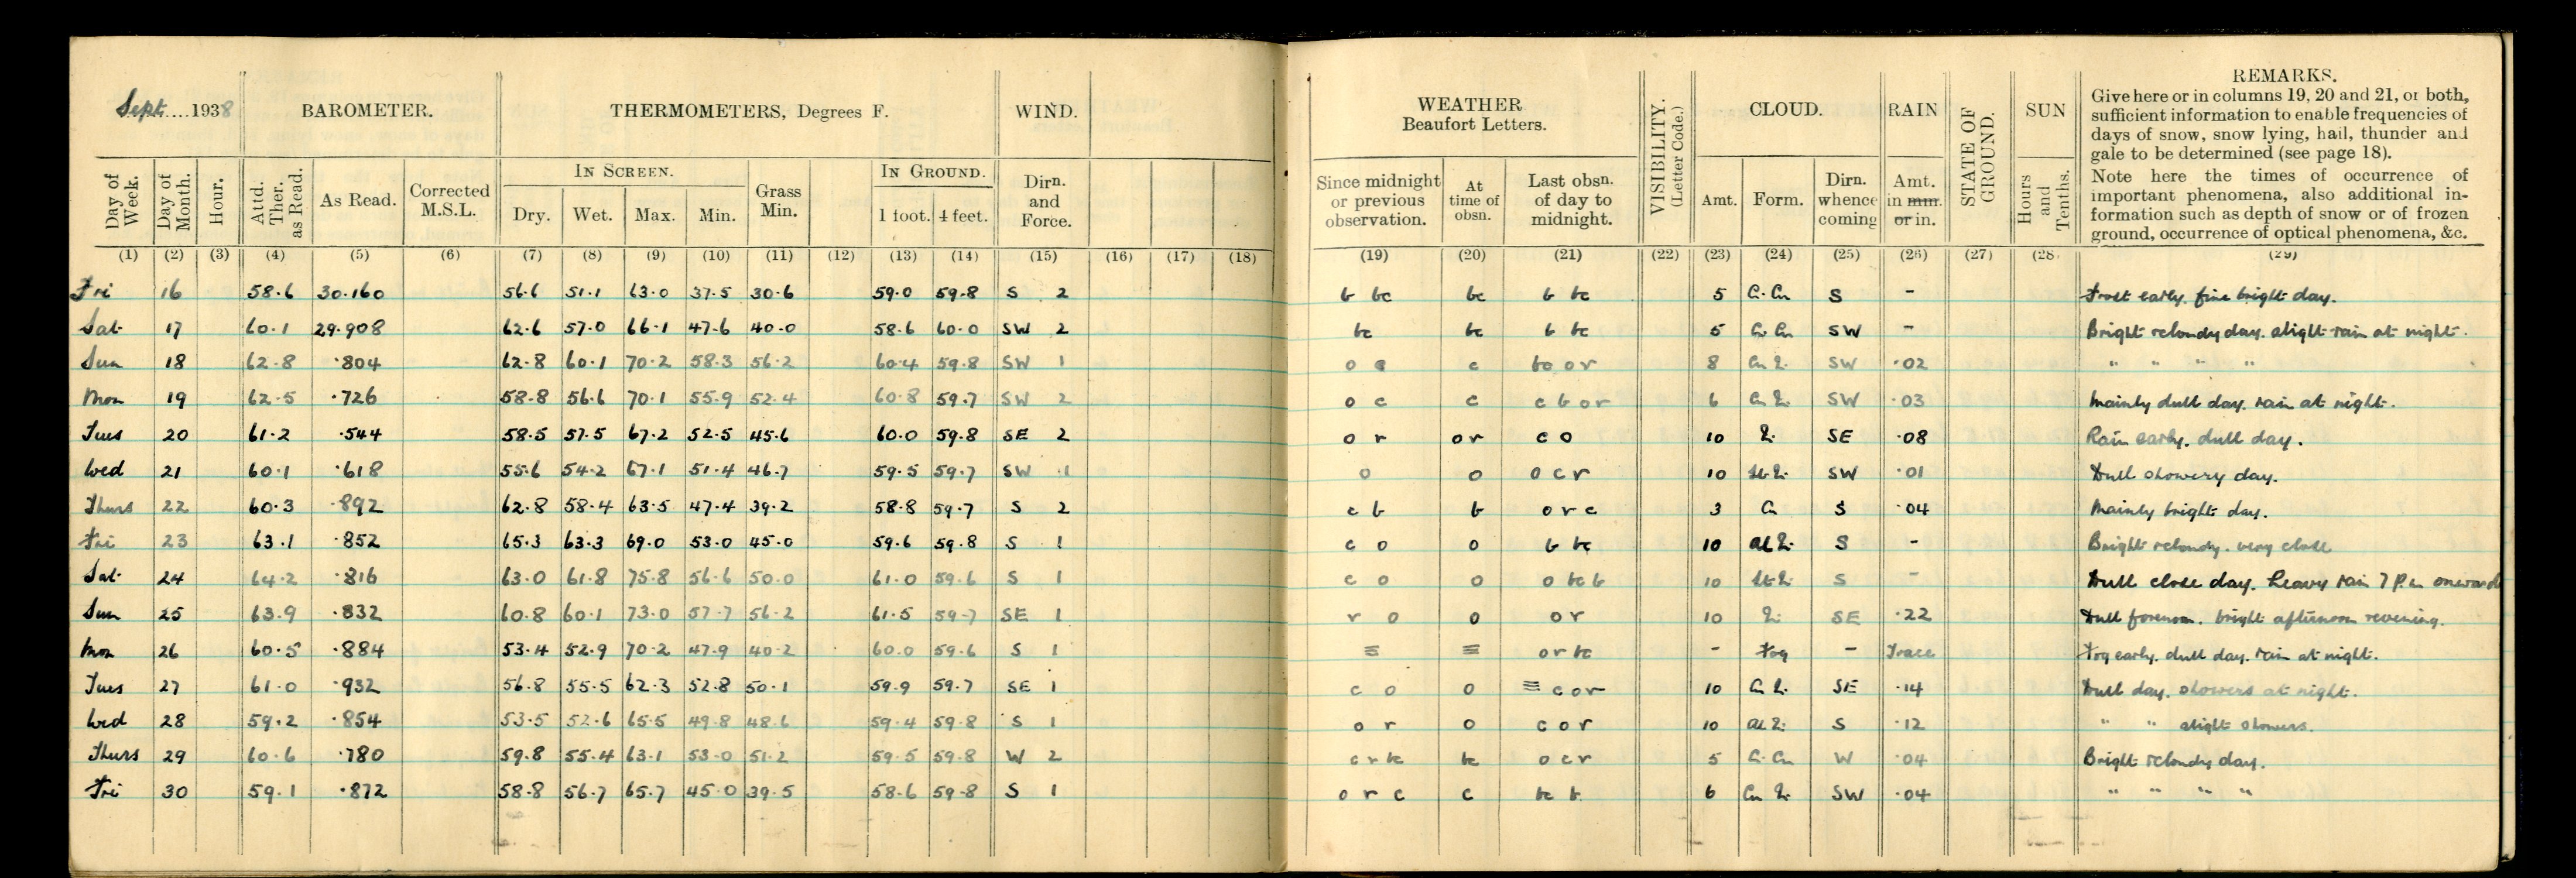 Sept....1938 BAROMETER. THERMOMETERS, Degrees F. WIND. WEATHER Beaufort Letters. VISIBILITY. (Letter Code.) CLOUD. RAIN STATE OF GROUND. SUN REMARKS.
Give here or in columns 19, 20 and 21, or both,
sufficient information to enable frequencies of
days of snow, snow lying, hail, thunder and
gale to be determined (see page 18).
Note here the times of occurrence of
important phenomena, also additional in-
formation such as depth of snow or of frozen
ground, occurrence of optical phenomena, &c.
Day of Week. Day of Month. Hour. Attd. Ther. as Read. As Read. Corrected M.S.L. IN SCREEN. Dry. Wet. Max. Min. Grass Min. IN GROUND. 1 foot. 4 feet. Dirn. and Force. Since midnight or previous observation. At time of obsn. Last obsn. of day to midnight. Amt. Form. Dirn. whence coming Amt. in mm. or in. Hours and Tenths.
(1) (2) (3) (4) (5) (6) (7) (8) (9) (10) (11) (12) (13) (14) (15) (16) (17) (18) (19) (20) (21) (22) (23) (24) (25) (26) (27) (28) (29)
Fri 16 58.6 30.160 56.6 51.1 63.0 37.5 30.6 59.0 59.8 S 2 b bc bc b bc 5 Ci-Cu S - Frost early. fine bright day.
Sat 17 60.1 29.908 62.6 57.0 66.1 47.6 40.0 58.6 60.0 SW 2 bc bc b bc 5 Ci Cu SW - Bright & cloudy day. slight rain at night.
Sun 18 62.8 .804 62.8 60.1 70.2 58.3 56.2 60.4 59.8 SW 1 o c c bc o r 8 Cu SW .02 " " " "
Mon 19 62.5 .726 58.8 56.6 70.1 55.9 52.4 60.8 59.7 SW 2 o c c c b o r 6 Cu SW .03 Mainly dull day. rain at night.
Tues 20 61.2 .544 58.5 57.5 67.2 52.5 45.6 60.0 59.8 SE 2 o r o r c o 10 SE .08 Rain early. dull day.
Wed 21 60.1 .618 55.6 54.2 67.1 51.4 46.7 59.5 59.7 SW 1 o o o c r 10 SW .01 Dull showery day.
Thurs 22 60.3 .892 62.8 58.4 63.5 47.4 39.2 58.8 59.7 S 2 c b b o r c 3 Cu S .04 Mainly bright day.
Fri 23 63.1 .852 65.3 63.3 69.0 53.0 45.0 59.6 59.8 S 1 c o o b bc 10 S - Bright & cloudy. very close
Sat 24 64.2 .816 63.0 61.8 75.8 56.6 50.0 61.0 59.6 S 1 c o o o bc b 10 S - Dull close day. heavy rain 7 P.m onwards
Sun 25 63.9 .832 60.8 60.1 73.0 57.7 56.2 61.5 59.7 SE 1 r o o o r 10 SE .22 Dull forenoon. bright afternoon & evening.
Mon 26 60.5 .884 53.4 52.9 70.2 47.9 40.2 60.0 59.6 S 1 ≡ ≡ o r bc - Fog - Trace Fog early. dull day. rain at night.
Tues 27 61.0 .932 56.8 55.5 62.3 52.8 50.1 59.9 59.7 SE 1 c o o ≡ c o r 10 SE .14 Dull day. showers at night.
Wed 28 59.2 .854 53.5 52.6 65.5 49.8 48.6 59.4 59.8 S 1 o r o c o r 10 S .12 " " slight showers.
Thurs 29 60.6 .780 59.8 55.4 63.1 53.0 51.2 59.5 59.8 W 2 c r bc bc o c r 5 Ci-Cu W .04 Bright & cloudy day.
Fri 30 59.1 .872 58.8 56.7 65.7 45.0 39.5 58.6 59.8 S 1 o r c c bc b 6 Cu SW .04 " " " "